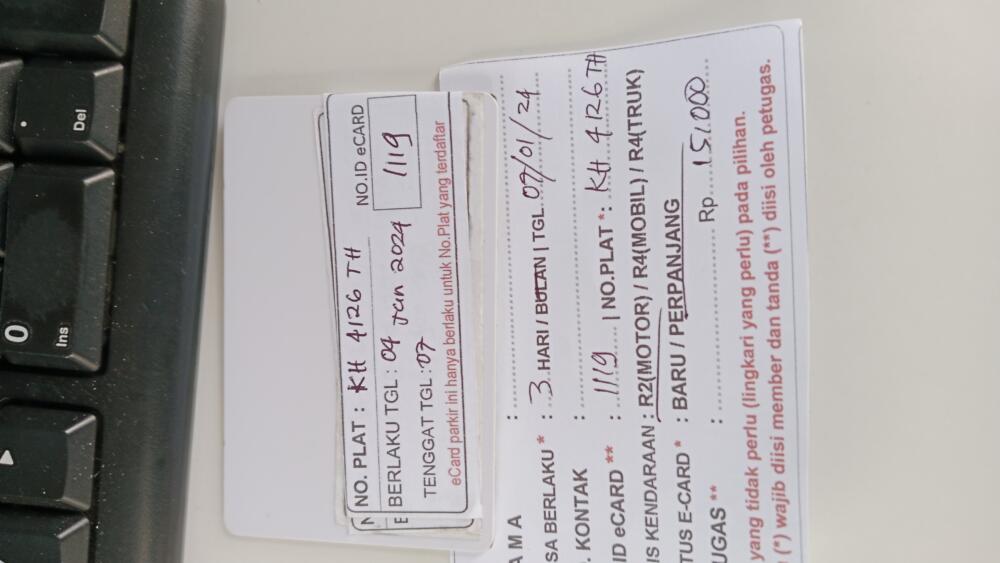 NO. PLAT : KH 4126 TH
NO.ID eCARD
BERLAKU TGL : 04 Jan 2024
1119
TENGGAT TGL : 07
eCard parkir ini hanya berlaku untuk No.Plat yang terdaftar
AMA :
SA BERLAKU * : 3 HARI / BULAN | TGL 07/01/24
. KONTAK :
ID eCARD ** : 1119 | NO.PLAT * : KH 4126 TH
IS KENDARAAN : R2(MOTOR) / R4(MOBIL) / R4(TRUK)
TUS E-CARD * : BARU / PERPANJANG
UGAS ** : Rp. 15.000
yang tidak perlu (lingkari yang perlu) pada pilihan.
(*) wajib diisi member dan tanda (**) diisi oleh petugas.
Del
.
0
Ins